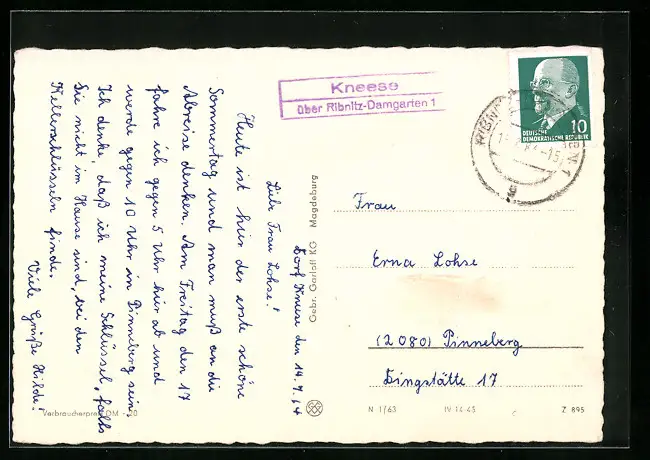 Dorf Kneese den 14.7.64
Liebe Frau Lohse!
Heute ist hier der erste schöne
Sommertag und man muß an die
Abreise denken. Am Freitag den 17
fahre ich gegen 5 Uhr hier ab und
werde gegen 10 Uhr in Pinneberg sein.
Ich denke, daß ich meine Schlüssel, falls
Sie nicht im Hause sind, bei den
Kellerschlüsseln finde.
Viele Grüße Hilde!
Verbraucherpreis DM -,20
Gebr. Garloff KG Magdeburg
Kneese
über Ribnitz-Damgarten 1
10
DEUTSCHE
DEMOKRATISCHE REPUBLIK
Frau
Erna Lohse
(2080) Pinneberg
Dingstätte 17
N 1/63 IV 14 45 C Z 895